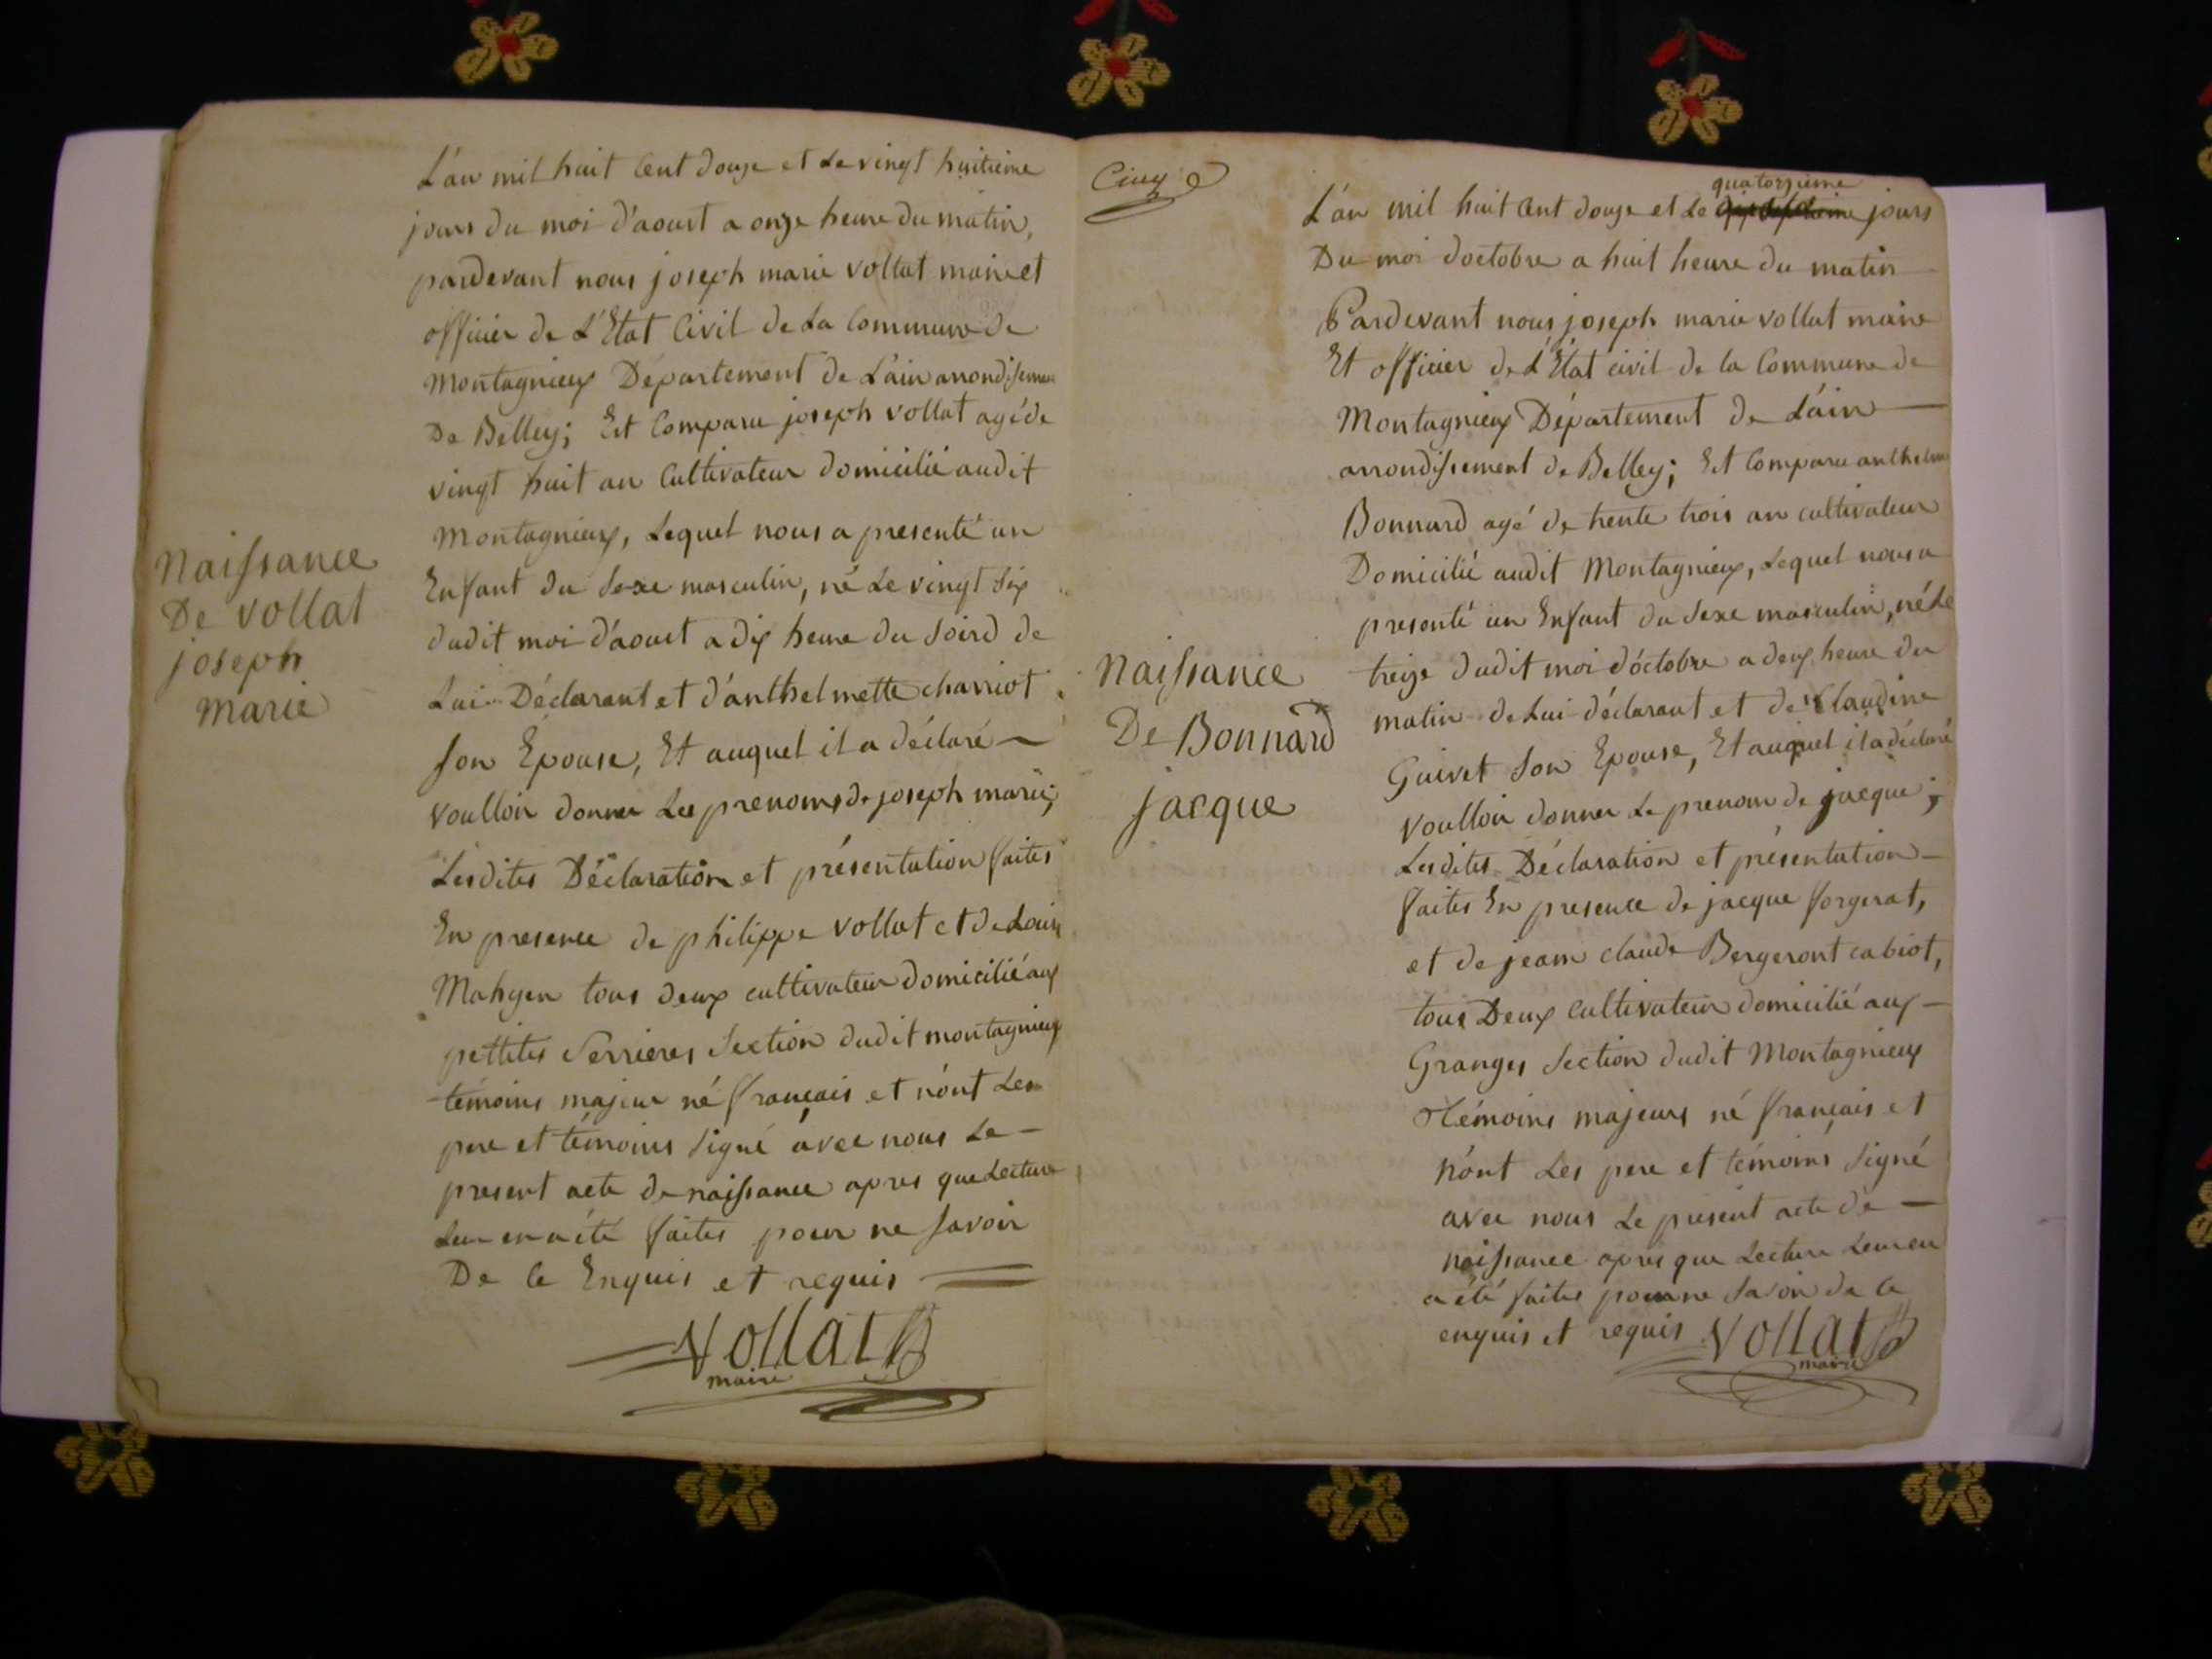 L'an mil huit Cent douze et Le vingt huitieme
jours du moi d'aoust a onze heure du matin,
pardevant nous joseph marie vollat maire et
officier de L'Etat Civil de La Commune de
Montagnieux Département de L'ain arrondissement
De Belley; Est Comparu joseph vollat agé de
vingt huit an Cultivateur domicilié audit
Montagnieux, Lequel nous a presenté un
Enfant du Sexe masculin, né Le vingt Six
dudit moi d'aoust a dix heure du Soird de
Lui Déclarant et d'anthelmette charriot
Son Epouse, Et auquel il a déclaré
voulloir donner Les prenoms de joseph marie;
Lesdites Déclaration et présentation faites
En presence de philippe vollat et de Louis
Mahyer tous deux cultivateur domicilié aux
pettites Serrieres Section dudit montagnieux
témoins majeur né français et n'ont Les
pere et témoins Signé avec nous Le
present acte de naissance apres que Lecture
Leur en a été faites pour ne Savoir
De Ce Enquis et requis
Vollat
maire
Naissance
De vollat
joseph
marie
Cinq
quatorzieme
L'an mil huit Cent douze et Le jours
Du moi d'octobre a huit heure du matin
Pardevant nous joseph marie vollat maire
Et officier de L'Etat civil de la Commune de
Montagnieux Département de L'ain
arrondissement de Belley; Est Comparu anthelme
Bonnard agé de trente trois an cultivateur
Domicilié audit Montagnieux, Lequel nous a
presenté un Enfant du Sexe masculin, né Le
treize dudit moi d'óctobre a deux heure du
matin de Lui déclarant et de Claudine
Guivet Son Epouse, Et auquel il a déclaré
voulloir donner Le prenom de jacque;
Lesdites Déclaration et présentation
faites En presence de jacque forgerat,
et de jean claude Bergeront cabiot,
tous Deux Cultivateur domicilié aux
Granges Section dudit Montagnieux
témoins majeurs né français et
n'ont Les pere et témoins Signé
avec nous Le present acte de
naissance apres que Lecture Leur en
a été faites pour ne Savoir de Ce
enquis et requis Vollat
maire
Naissance
De Bonnard
jacque